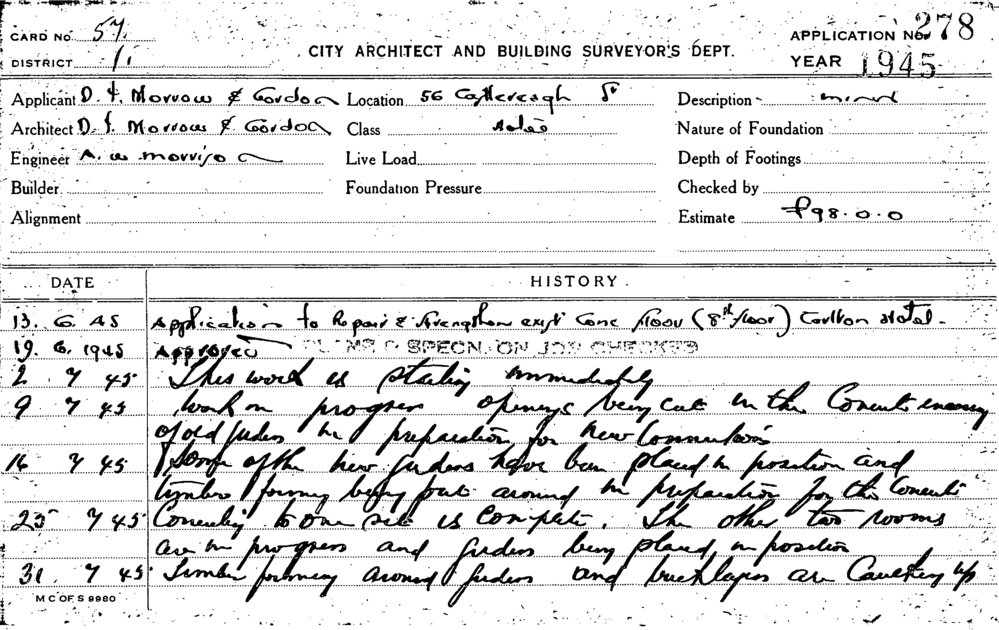 CARD No. 57. CITY ARCHITECT AND BUILDING SURVEYOR'S DEPT. APPLICATION No. 278
DISTRICT 1. YEAR 1945
Applicant D. F. Morrow & Gordon Location 56 Castlereagh St Description minor
Architect D. F. Morrow & Gordon Class Nature of Foundation
Engineer A. W. Morrison Live Load Depth of Footings
Builder Foundation Pressure Checked by
Alignment Estimate £98.0.0
DATE HISTORY
13. 6. 45 Application to Repair & Strengthen exist Conc floor (8th floor) Carlton Hotel.
19. 6. 1945 Approved PLANS & SPECN. ON JOB CHECKED
2 7 45 This work is starting immediately
9 7 45 work in progress openings being cut in the Concrete
of old girders in preparation for new Connections
16 7 45 Some of the new girders have been placed in position and
timber forming being put around in preparation for the Concrete
23 7 45 Concreting to one is complete. The other two rooms
are in progress and girders being placed in position
31 7 45 Timber forming around girders and are
M C OF S 9980